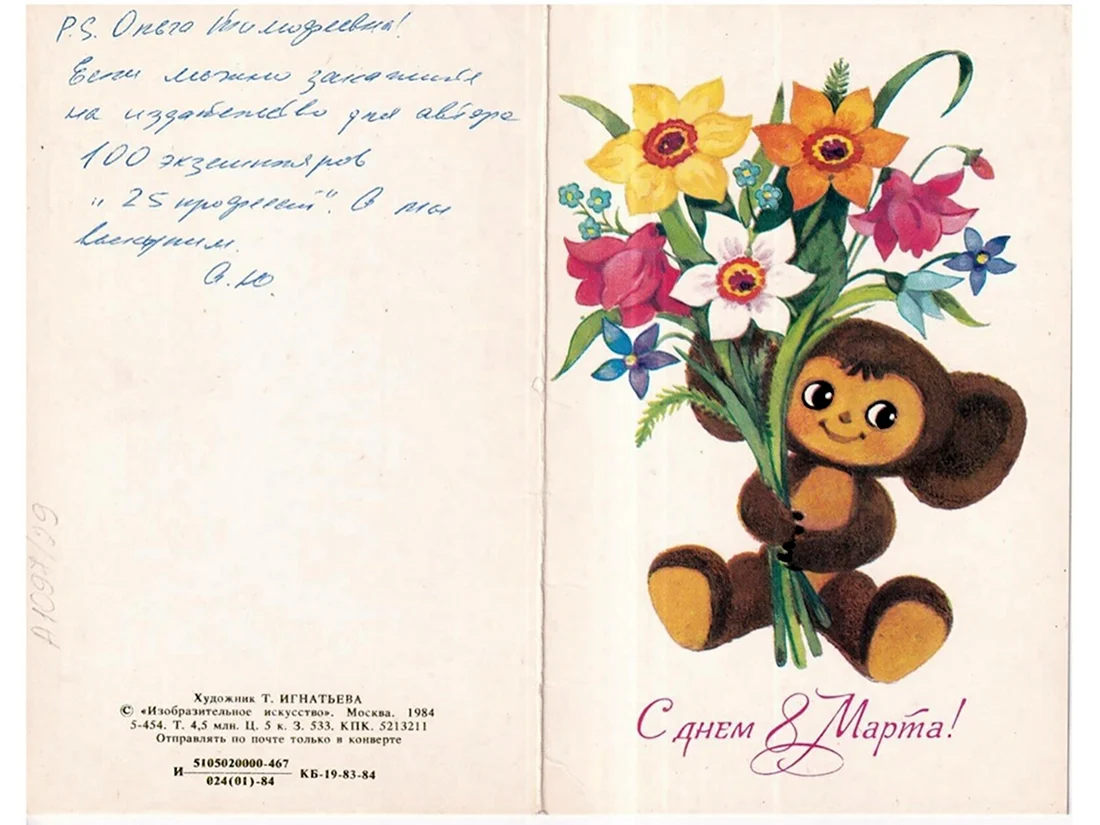 P.S. Ольга Тимофеевна!
Если можно закажите
на издательство для автора
100 экземпляров
"25 профессий". А мы
выкупим.
А.Ю
А1097/29
Художник Т. ИГНАТЬЕВА
© «Изобразительное искусство». Москва. 1984
5-454. Т. 4,5 млн. Ц. 5 к. З. 533. КПК. 5213211
Отправлять по почте только в конверте
И 5105020000-467
024(01)-84 КБ-19-83-84
С днем 8 Марта!